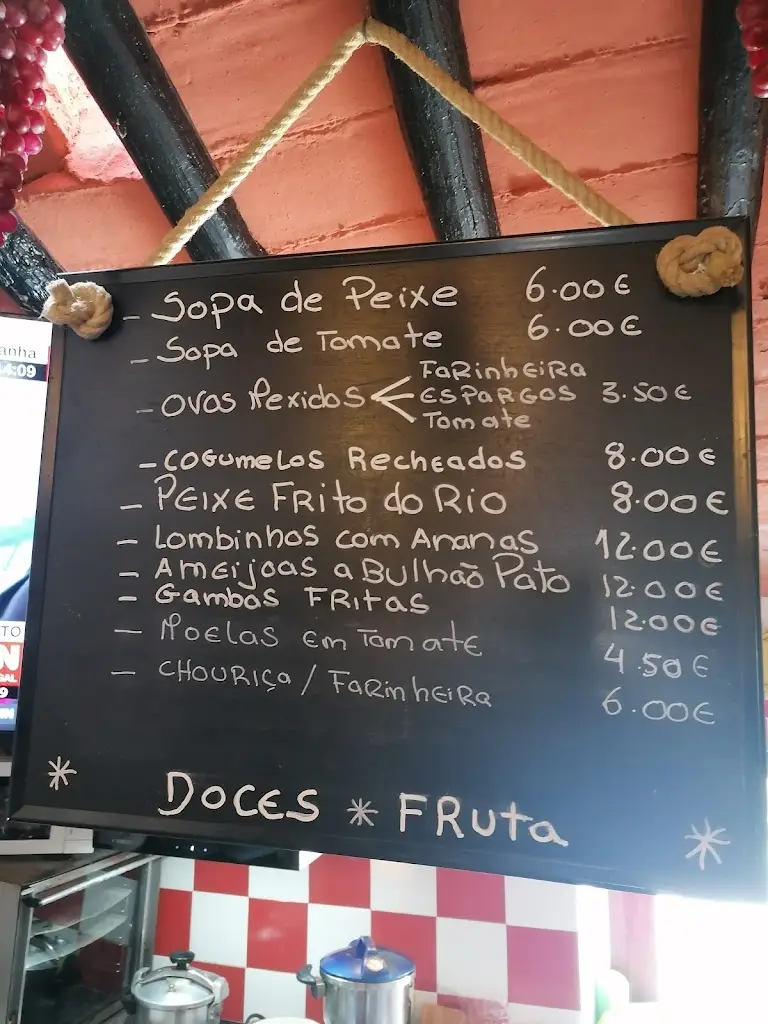 - Sopa de Peixe 6.00€
- Sopa de Tomate 6.00€
- Ovos Mexidos < Farinheira
Espargos 3.50€
Tomate
- Cogumelos Recheados 8.00€
- Peixe Frito do Rio 8.00€
- Lombinhos com Ananas 12.00€
- Ameijoas a Bulhão Pato 12.00€
- Gambas Fritas 12.00€
- Moelas em Tomate 4.50€
- Chouriça / Farinheira 6.00€
* Doces * Fruta *
anha
4:09
TO
N
GAL
9